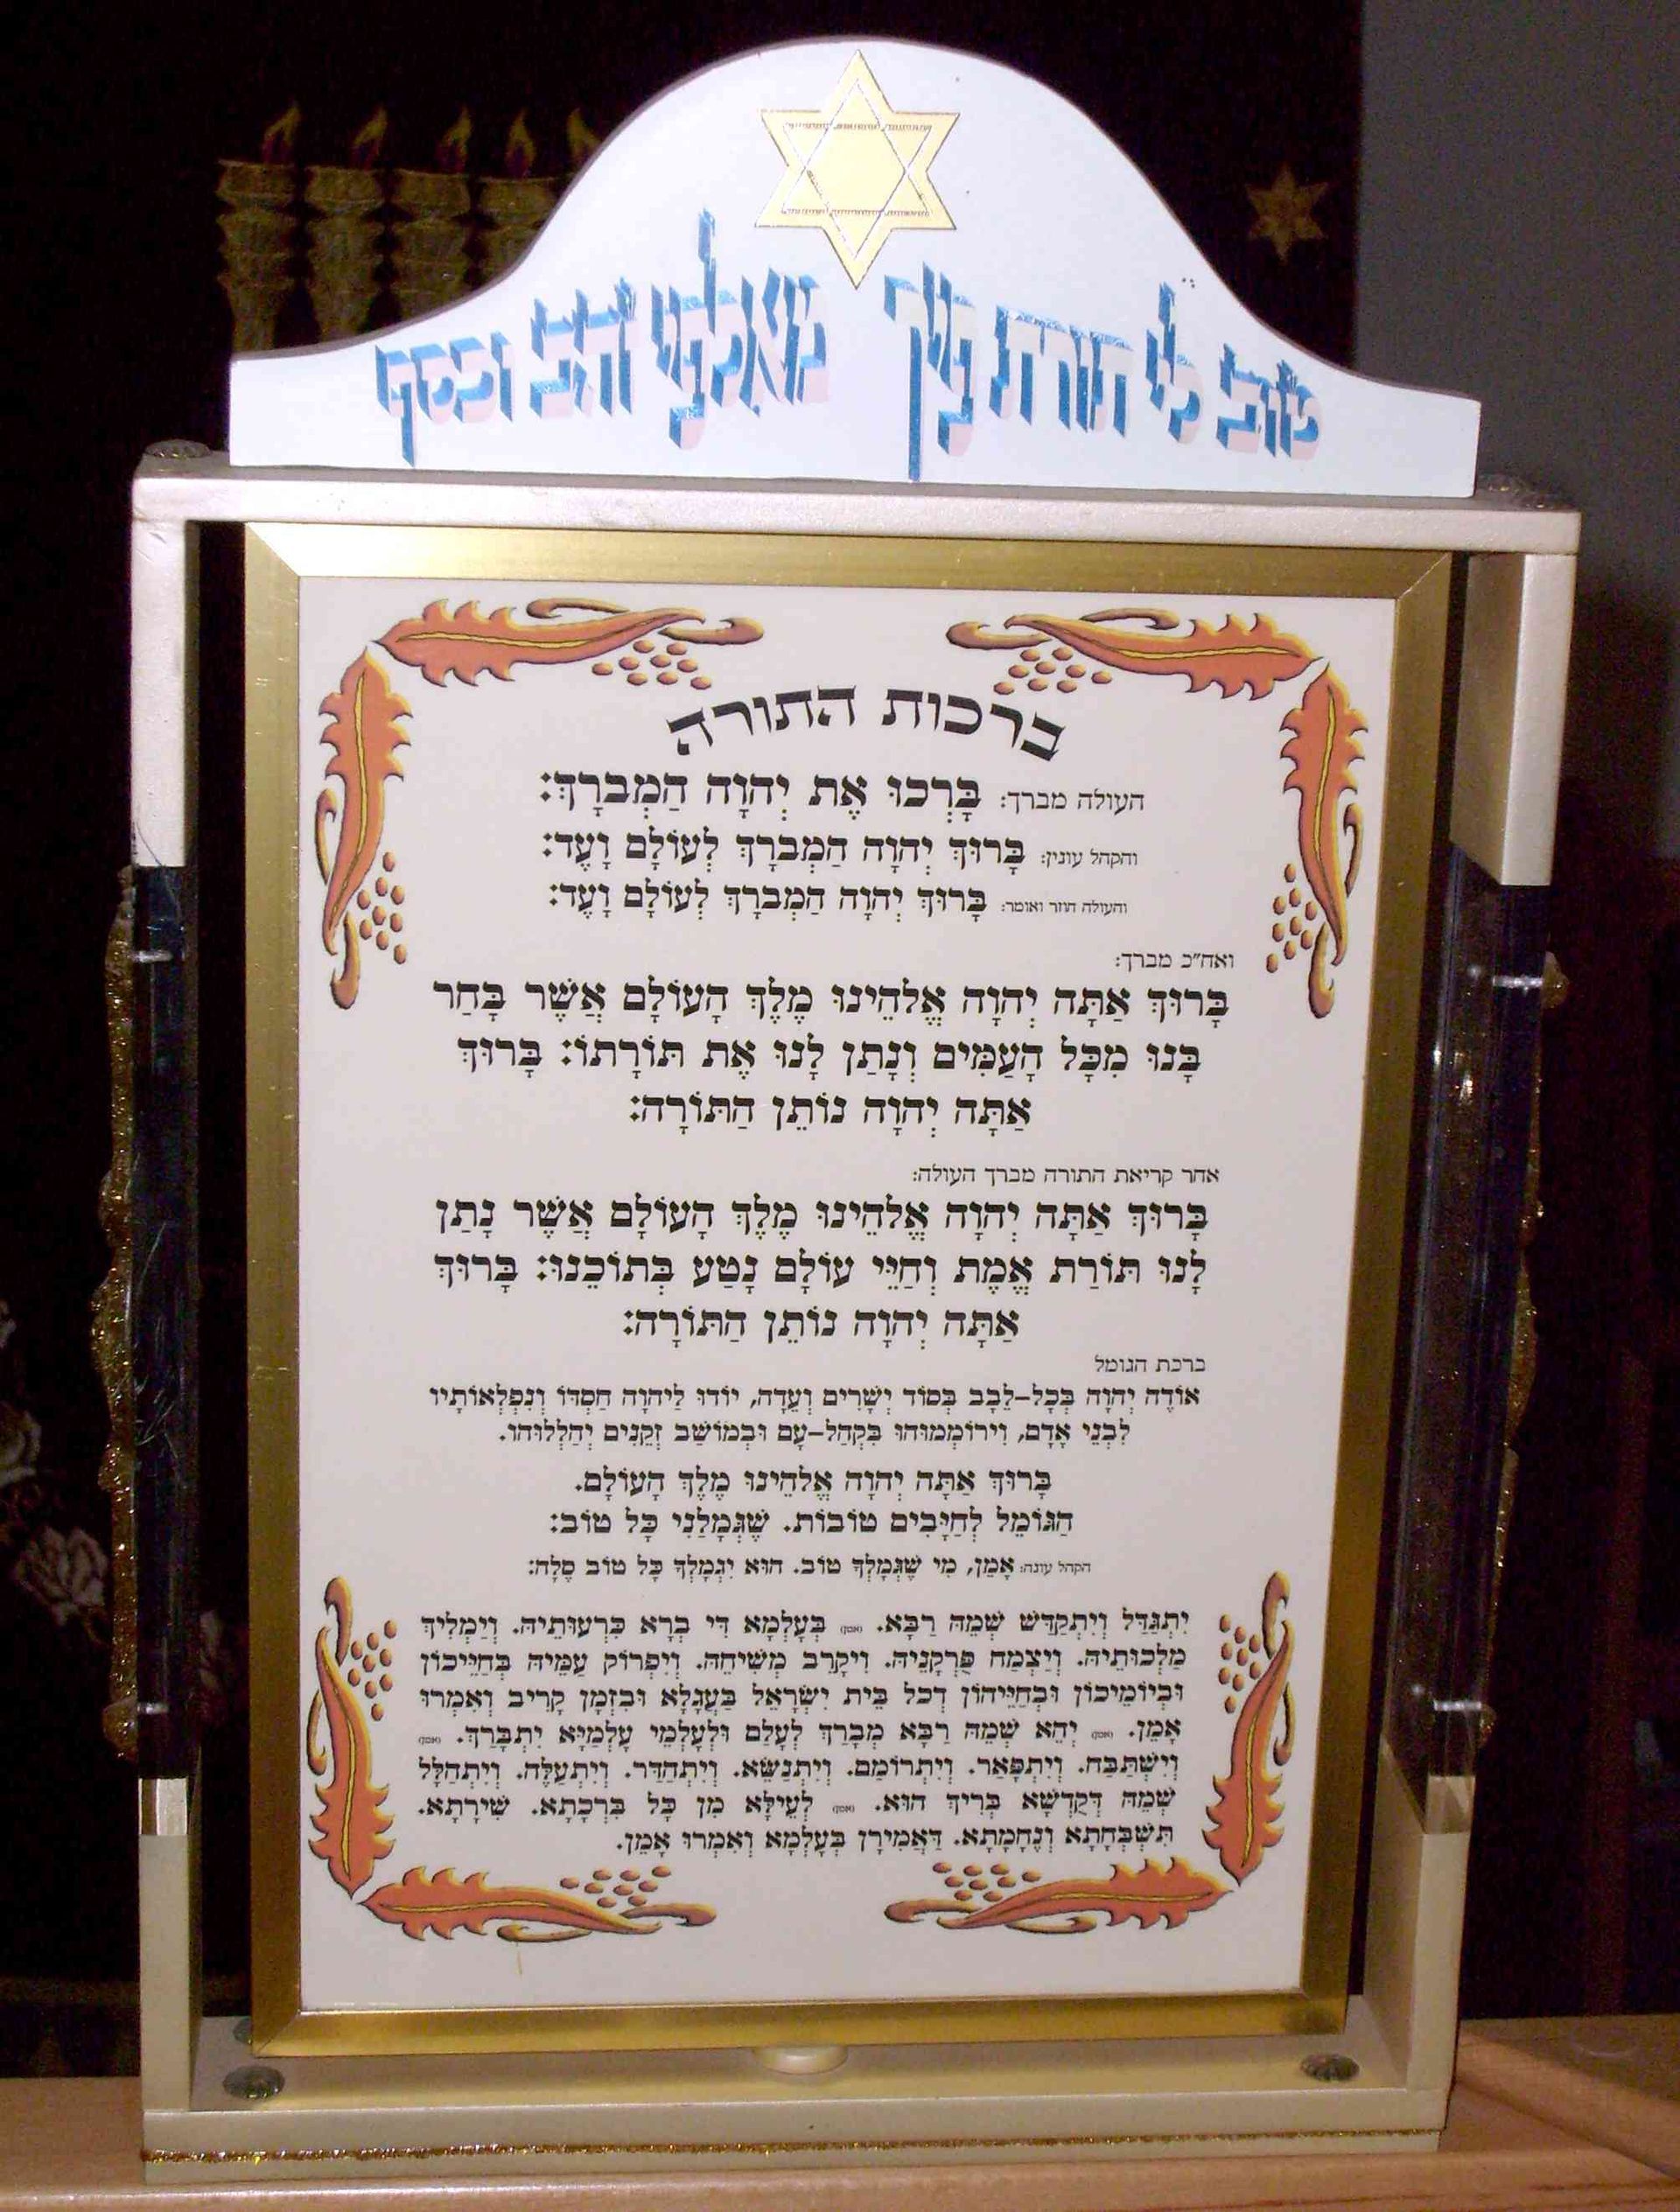 טוב לי תורת פיך מאלפי זהב וכסף
ברכות התורה
העולה מברך: בָּרְכוּ אֶת יְהוָה הַמְבֹרָךְ:
והקהל עונין: בָּרוּךְ יְהוָה הַמְבֹרָךְ לְעוֹלָם וָעֶד:
והעולה חוזר ואומר: בָּרוּךְ יְהוָה הַמְבֹרָךְ לְעוֹלָם וָעֶד:
ואח״כ מברך:
בָּרוּךְ אַתָּה יְהוָה אֱלֹהֵינוּ מֶלֶךְ הָעוֹלָם אֲשֶׁר בָּחַר
בָּנוּ מִכָּל הָעַמִּים וְנָתַן לָנוּ אֶת תּוֹרָתוֹ: בָּרוּךְ
אַתָּה יְהוָה נוֹתֵן הַתּוֹרָה:
אחר קריאת התורה מברך העולה:
בָּרוּךְ אַתָּה יְהוָה אֱלֹהֵינוּ מֶלֶךְ הָעוֹלָם אֲשֶׁר נָתַן
לָנוּ תּוֹרַת אֱמֶת וְחַיֵּי עוֹלָם נָטַע בְּתוֹכֵנוּ: בָּרוּךְ
אַתָּה יְהוָה נוֹתֵן הַתּוֹרָה:
ברכת הגומל
אוֹדֶה יְהוָה בְּכָל-לֵבָב בְּסוֹד יְשָׁרִים וְעֵדָה, יוֹדוּ לַיהוָה חַסְדּוֹ וְנִפְלְאוֹתָיו
לִבְנֵי אָדָם, וִירוֹמְמוּהוּ בִּקְהַל-עָם וּבְמוֹשַׁב זְקֵנִים יְהַלְלוּהוּ.
בָּרוּךְ אַתָּה יְהוָה אֱלֹהֵינוּ מֶלֶךְ הָעוֹלָם.
הַגּוֹמֵל לְחַיָּבִים טוֹבוֹת. שֶׁגְּמָלַנִי כָּל טוֹב:
הקהל עונה: אָמֵן, מִי שֶׁגְּמָלְךָ טוֹב. הוּא יִגְמָלְךָ כָּל טוֹב סֶלָה:
יִתְגַּדַּל וְיִתְקַדַּשׁ שְׁמֵהּ רַבָּא. (אמן) בְּעָלְמָא דִּי בְרָא כִּרְעוּתֵיהּ. וְיַמְלִיךְ
מַלְכוּתֵיהּ. וְיַצְמַח פֻּרְקָנֵיהּ. וִיקָרֵב מְשִׁיחֵהּ. וְיִפְרוֹק עַמֵּיהּ בְּחַיֵּיכוֹן
וּבְיוֹמֵיכוֹן וּבְחַיֵּיהוֹן דְכָל בֵּית יִשְׂרָאֵל בַּעֲגָלָא וּבִזְמַן קָרִיב וְאִמְרוּ
אָמֵן. (אמן) יְהֵא שְׁמֵהּ רַבָּא מְבָרַךְ לְעָלַם וּלְעָלְמֵי עָלְמַיָּא יִתְבָּרַךְ. (אמן)
וְיִשְׁתַּבַּח. וְיִתְפָּאַר. וְיִתְרוֹמַם. וְיִתְנַשֵּׂא. וְיִתְהַדַּר. וְיִתְעַלֶּה. וְיִתְהַלָּל
שְׁמֵהּ דְּקֻדְשָׁא בְּרִיךְ הוּא. (אמן) לְעֵילָּא מִן כָּל בִּרְכָתָא. שִׁירָתָא.
תִּשְׁבְּחָתָא וְנֶחָמָתָא. דַּאֲמִירָן בְּעָלְמָא וְאִמְרוּ אָמֵן.